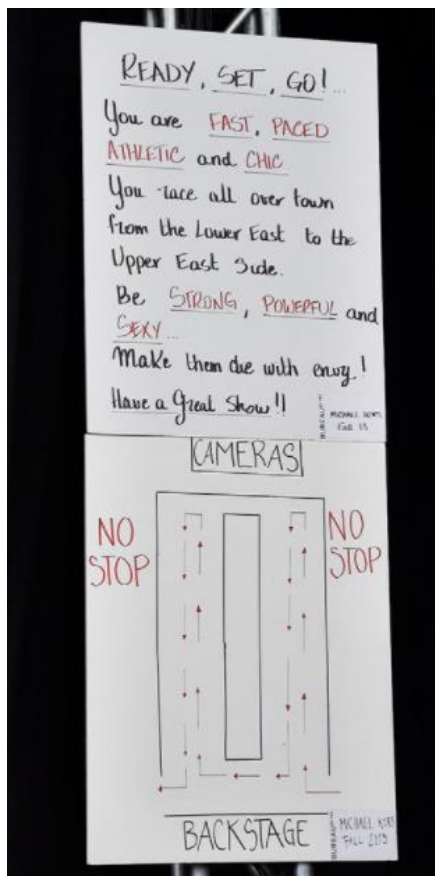 READY, SET, GO!...
You are FAST, PACED
ATHLETIC and CHIC
You race all over town
from the Lower East to the
Upper East Side.
Be STRONG, POWERFUL and
SEXY...
Make them die with envy!
Have a Great Show!!
BUREAU
MICHAEL KORS
Fall 13
CAMERAS
NO
STOP
NO
STOP
BACKSTAGE
BUREAU
MICHAEL KORS
FALL 2013